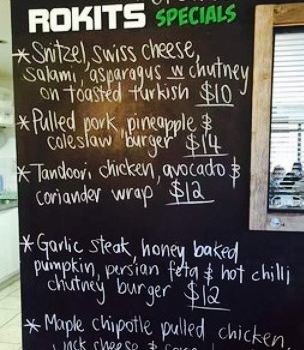 ROKITS SPECIALS
* Snitzel, swiss cheese,
salami, asparagus w chutney
on toasted turkish $10
* Pulled pork, pineapple &
coleslaw burger $14
* Tandoori chicken, avocado &
coriander wrap $12
* Garlic steak, honey baked
pumpkin, persian feta & hot chilli
chutney burger $12
* Maple chipotle pulled chicken,
jack cheese &